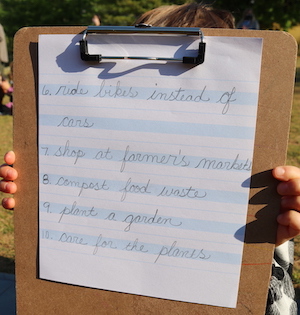 6. ride bikes instead of
cars
7. shop at farmer's markets
8. compost food waste
9. plant a garden
10. care for the plants